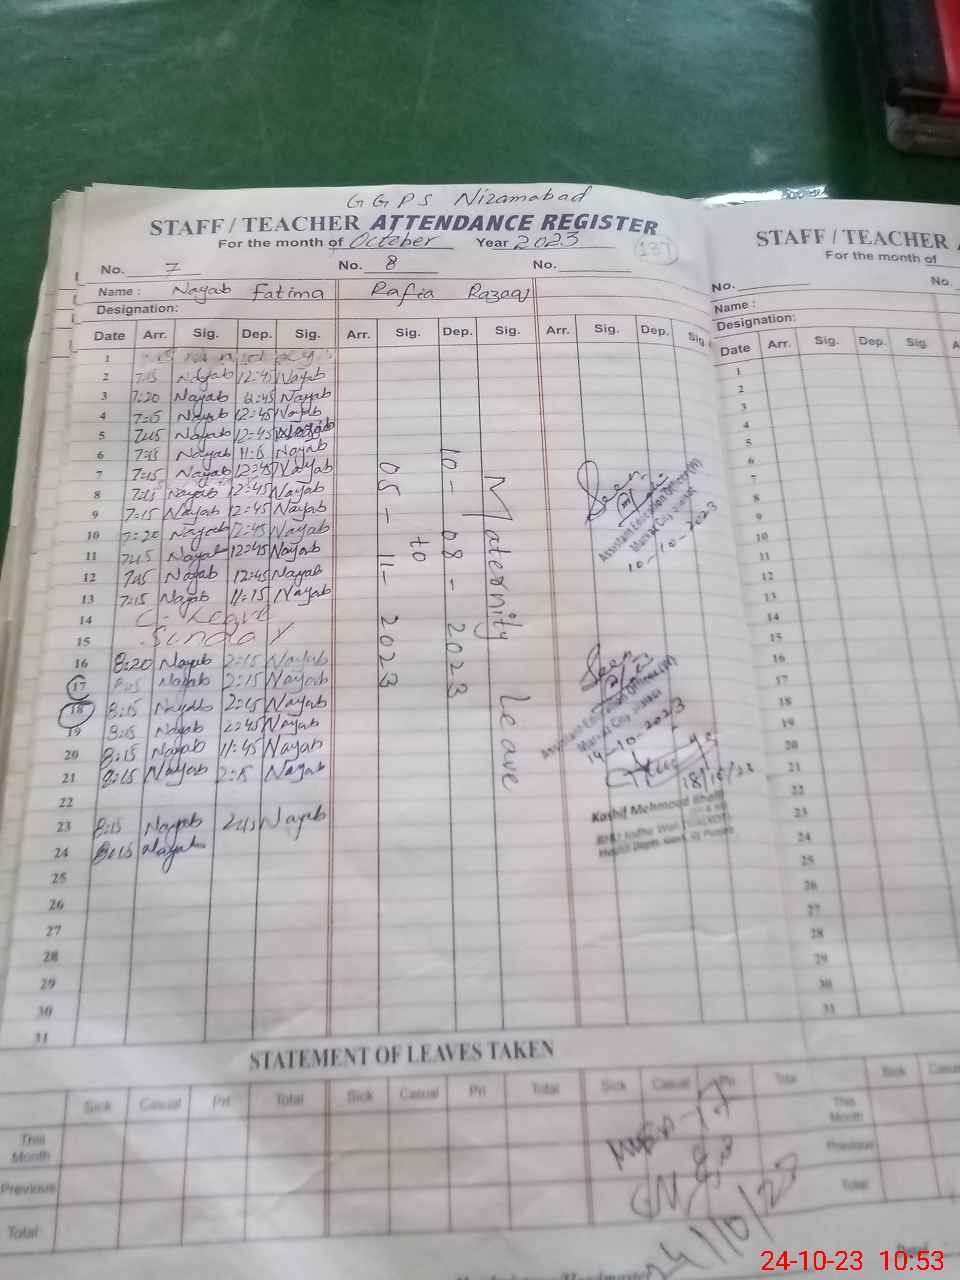 GGPS Nizamabad
STAFF / TEACHER ATTENDANCE REGISTER
For the month of October Year 2023
137
No. 7 No. 8 No.
Name : Nayab Fatima Rafia Razaq
Designation:
Date Arr. Sig. Dep. Sig. Arr. Sig. Dep. Sig. Arr. Sig. Dep. Sig.
1
2 7:15 Nayab 12:45 Nayab
3 7:20 Nayab 12:45 Nayab
4 7:15 Nayab 12:45 Nayab
5 7:15 Nayab 12:45 Nayab
6 7:15 Nayab Nayab
7 7:15 Nayab 12:45 Nayab
8 7:15 Nayab 12:45 Nayab
9 7:15 Nayab 12:45 Nayab
10 7:20 Nayab 12:45 Nayab
11 7:15 Nayab 12:45 Nayab
12 7:15 Nayab 12:45 Nayab
13 7:15 Nayab 11:15 Nayab
14 C. Leave
15 Sunday
16 8:20 Nayab 2:15 Nayab
17 8:15 Nayab 2:15 Nayab
18 8:15 Nayab 2:15 Nayab
19 8:15 Nayab 2:45 Nayab
20 8:15 Nayab 11:45 Nayab
21 8:15 Nayab 2:15 Nayab
22
23 8:15 Nayab 2:15 Nayab
24 8:15 Nayab
25
26
27
28
29
30
31
Maternity Leave
10-08-2023
to
05-11-2023
Seen
Assistant Education Officer (W)
10-10-2023
Seen
Assistant Education Officer (W)
14-10-2023
18/10/23
Kashif Mehmood Bhatti
STATEMENT OF LEAVES TAKEN
Sick Casual Pri Total Sick Casual Pri Total Sick Casual Pri Total
This Month
Previous
Total
24/10/23
STAFF / TEACHER
For the month of
No. No.
Name :
Designation:
Date Arr. Sig. Dep. Sig.
1
2
3
4
5
6
7
8
9
10
11
12
13
14
15
16
17
18
19
20
21
22
23
24
25
26
27
28
29
30
31
Sick
This Month
Previous
Total
24-10-23 10:53